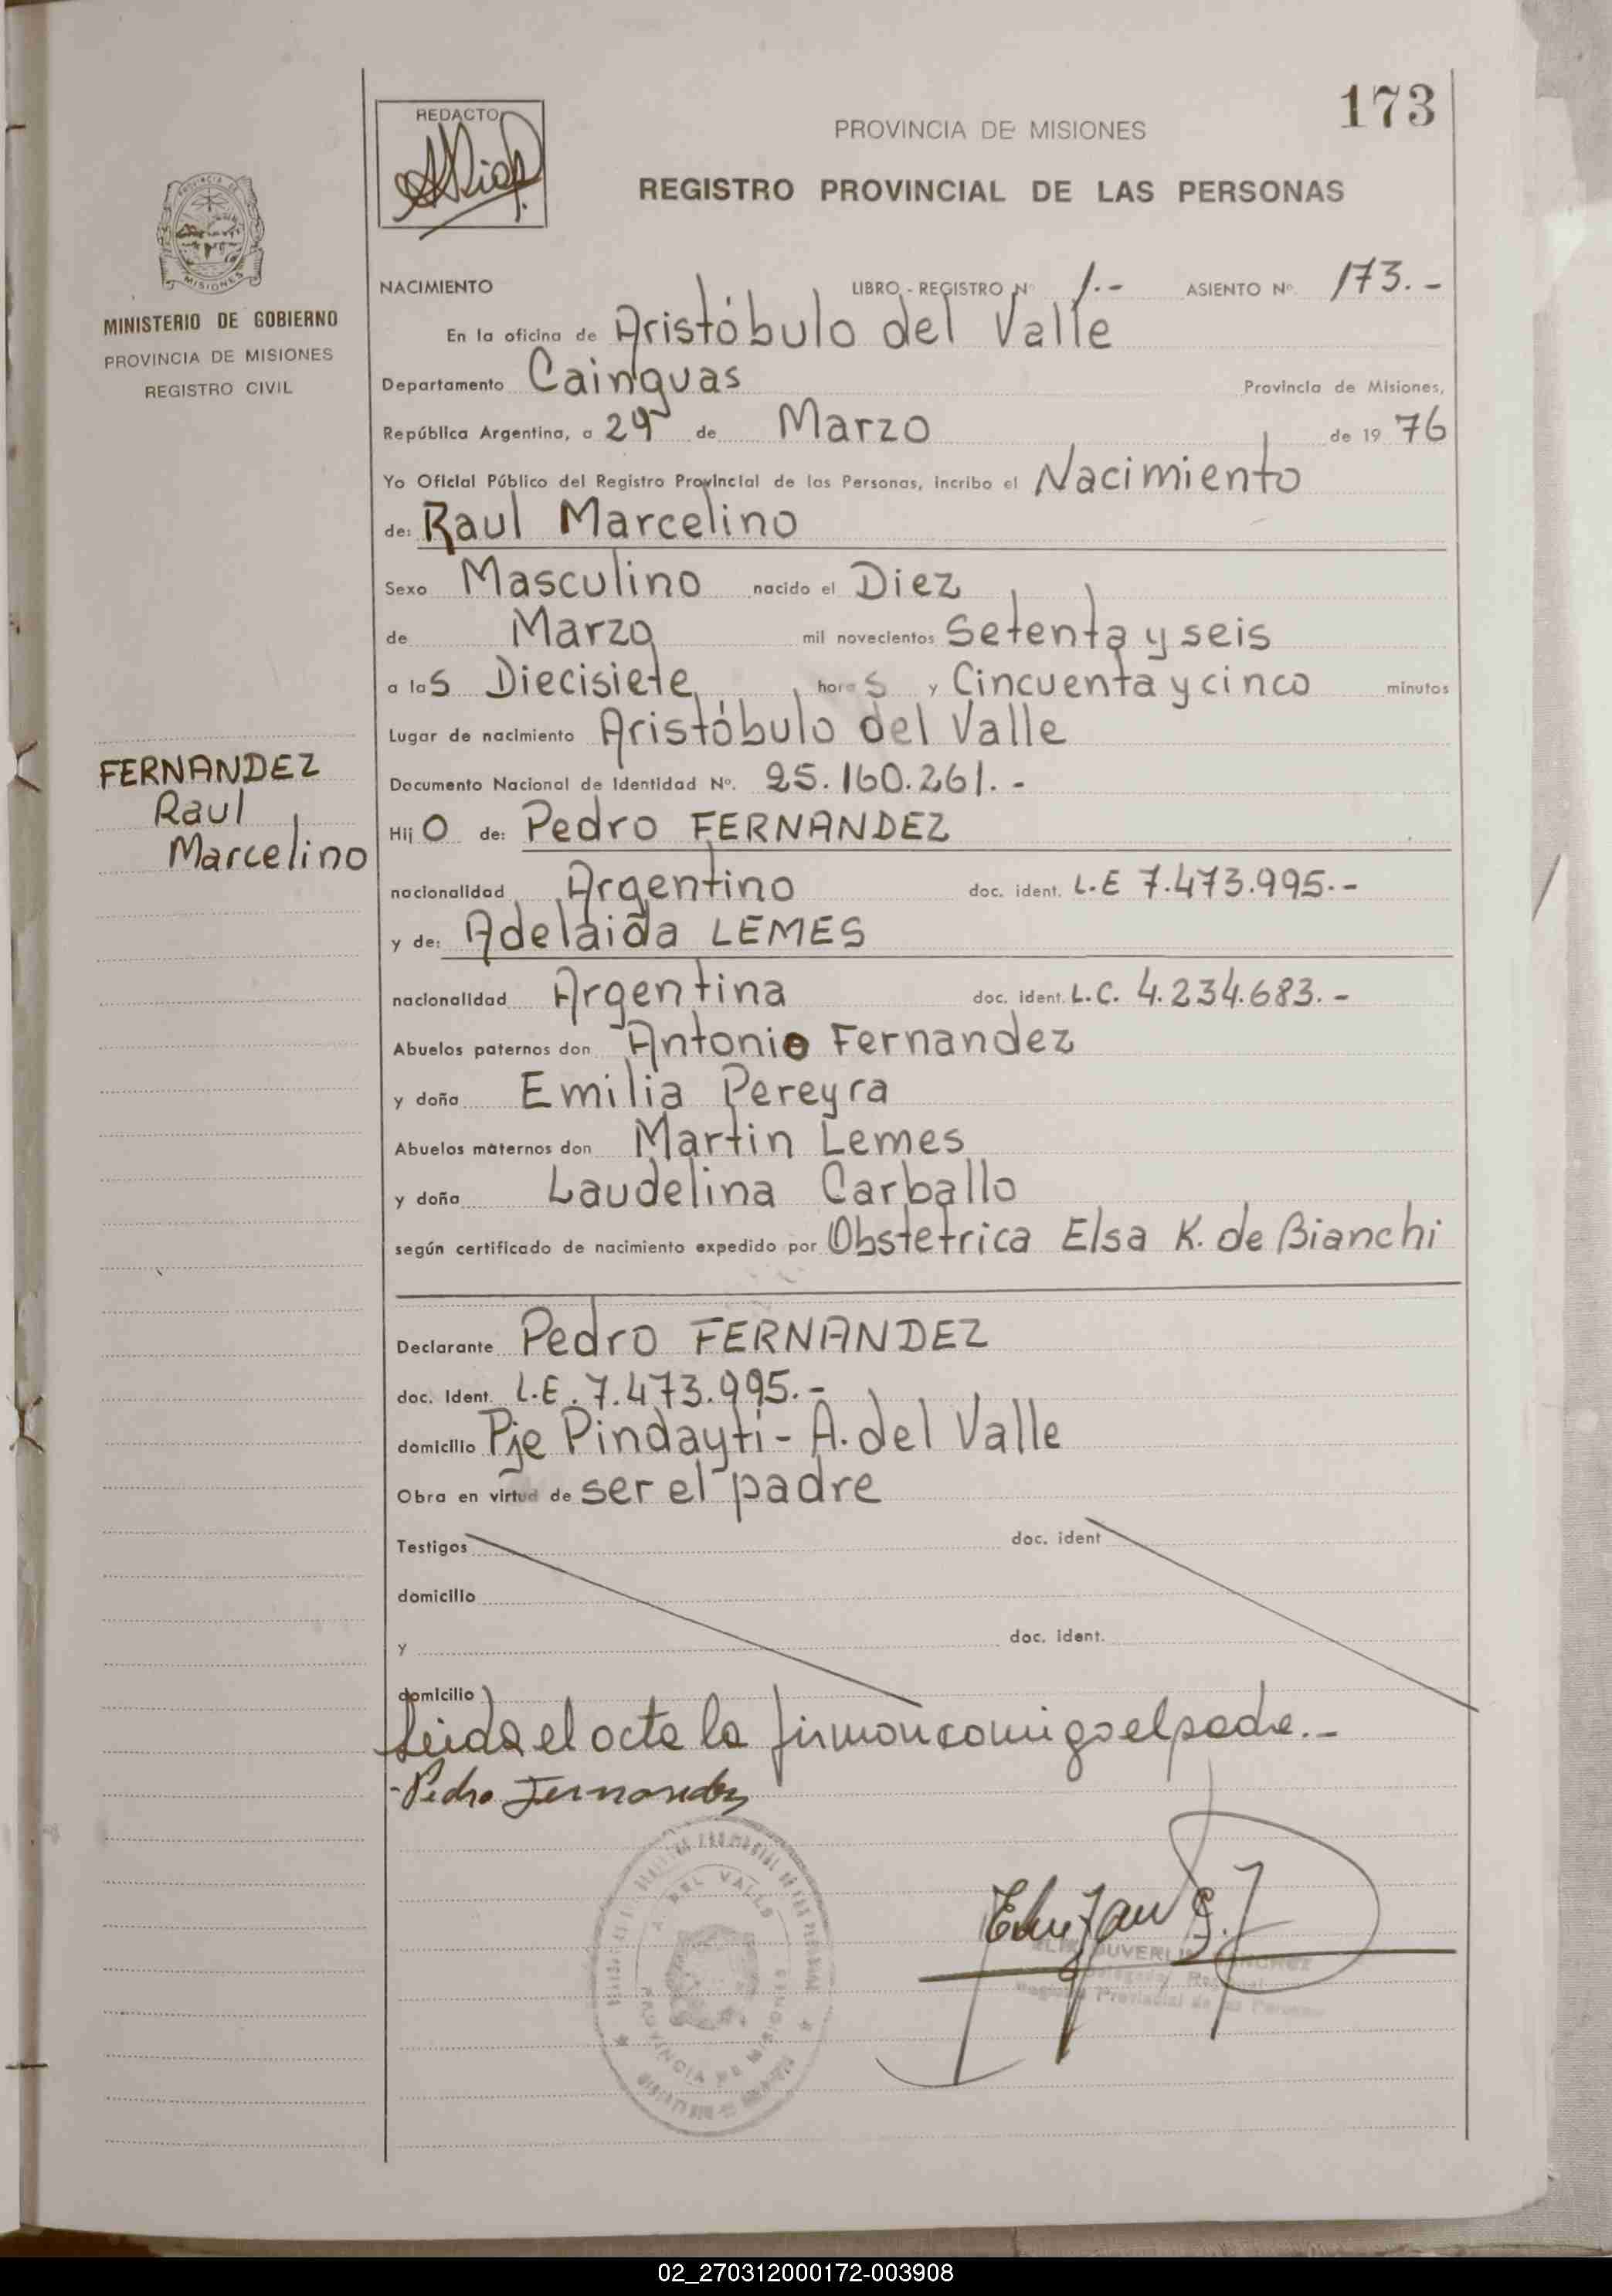 173
REDACTO
PROVINCIA DE MISIONES
REGISTRO PROVINCIAL DE LAS PERSONAS
PROVINCIA DE
MISIONES
MINISTERIO DE GOBIERNO
PROVINCIA DE MISIONES
REGISTRO CIVIL
NACIMIENTO LIBRO - REGISTRO Nº 1.- ASIENTO Nº. 173.-
En la oficina de Aristóbulo del Valle
Departamento Cainguas Provincia de Misiones,
República Argentina, a 29 de Marzo de 19 76
Yo Oficial Público del Registro Provincial de las Personas, incribo el Nacimiento
de: Raul Marcelino
Sexo Masculino nacido el Diez
de Marzo mil novecientos Setenta y seis
a las Diecisiete horas y Cincuenta y cinco minutos
Lugar de nacimiento Aristóbulo del Valle
FERNANDEZ
Raul
Marcelino
Documento Nacional de Identidad Nº. 25.160.261.-
Hijo de: Pedro FERNANDEZ
nacionalidad Argentino doc. ident. L.E 7.473.995.-
y de: Adelaida LEMES
nacionalidad Argentina doc. ident. L.C. 4.234.683.-
Abuelos paternos don Antonio Fernandez
y doña Emilia Pereyra
Abuelos maternos don Martin Lemes
y doña Laudelina Carballo
según certificado de nacimiento expedido por Obstetrica Elsa K. de Bianchi
Declarante Pedro FERNANDEZ
doc. Ident. L.E. 7.473.995.-
domicilio Pje Pindayti - A. del Valle
Obra en virtud de ser el padre
Testigos doc. ident
domicilio
y doc. ident.
domicilio
Leida el acta la firman comigo el padre.-
- Pedro Fernandez
DEL VALLE
PROVINCIA DE MISIONES
Registro Provincial de las Personas
02_270312000172-003908